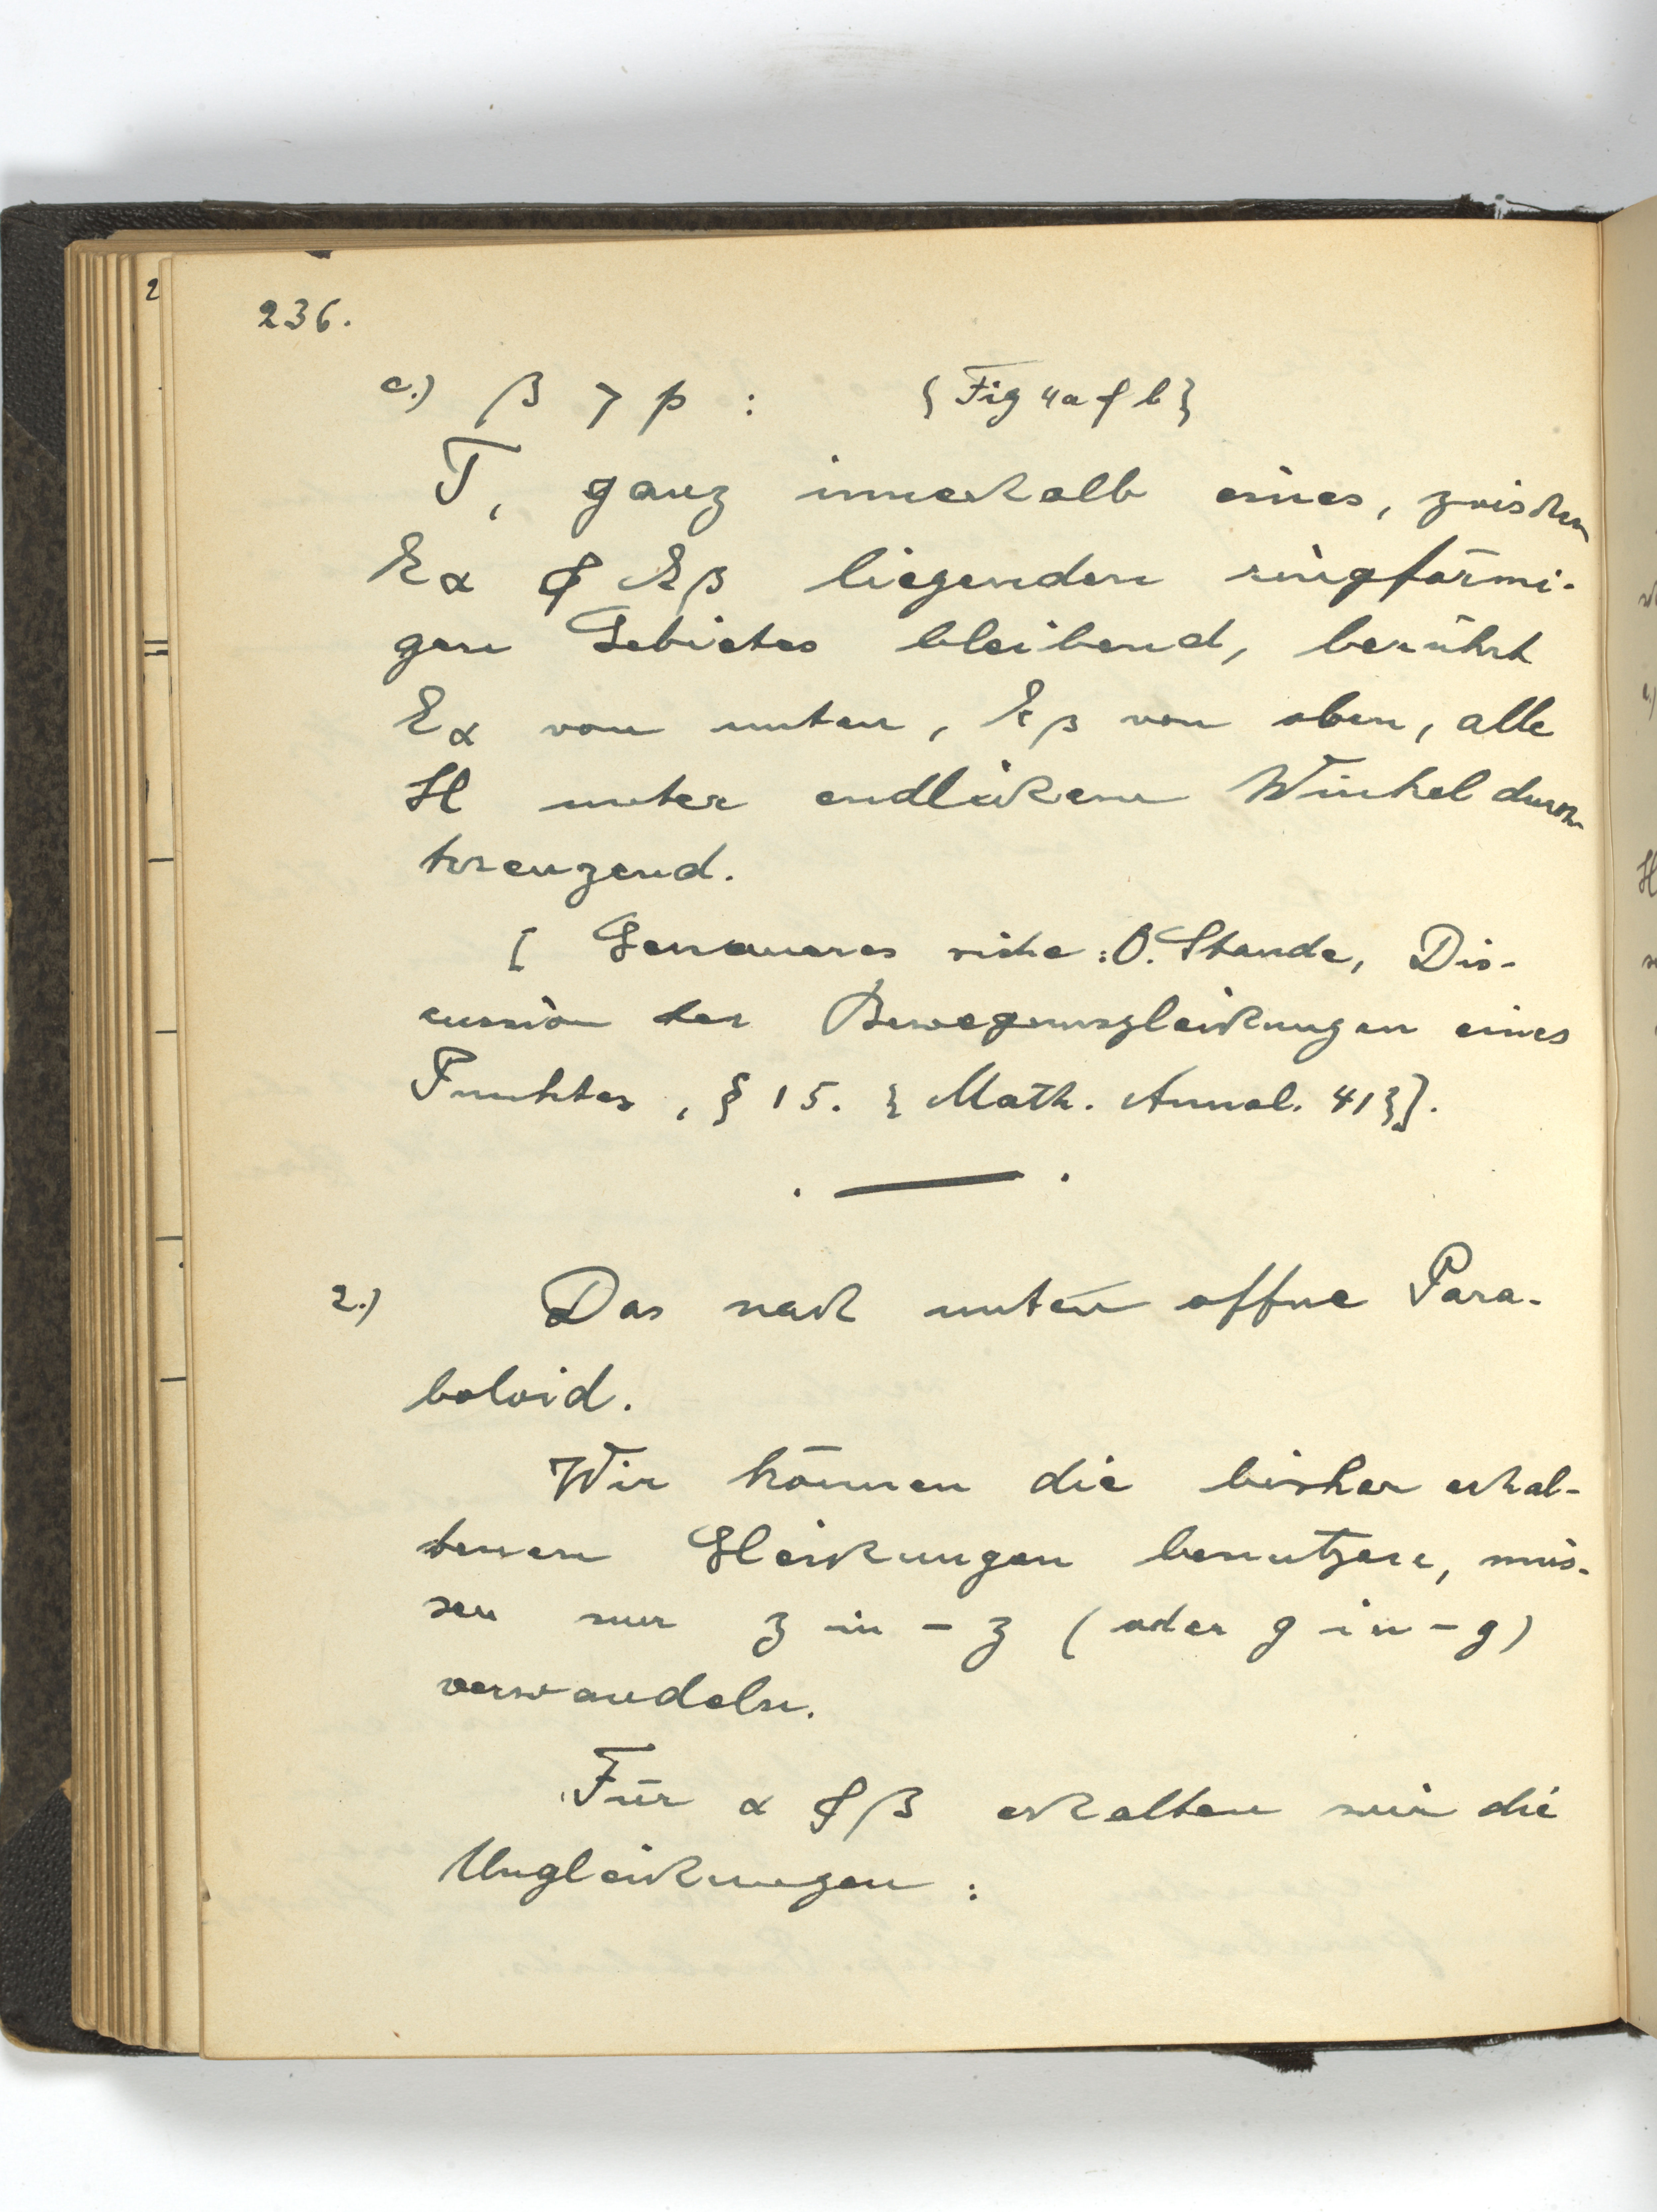 236.
c.) β > p : { Fig 4a & b }
T, ganz innerhalb eines, zwischen
Eα & Eβ liegenden ringförmi-
gen Gebietes bleibend, berührt
Eα von unten, Eβ von oben, alle
H unter endlichem Winkel durch-
kreuzend.
[ Genaueres siehe: O. Staude, Dis-
cussion der Bewegungsgleichungen eines
Punktes, § 15. { Math. Annal. 41}].
2.) Das nach unten offne Para-
boloid.
Wir können die bisher erhal-
tenen Gleichungen benutzen, müs-
sen nur z in - z ( oder g in - g )
verwandeln.
Für α & β erhalten wir die
Ungleichungen :